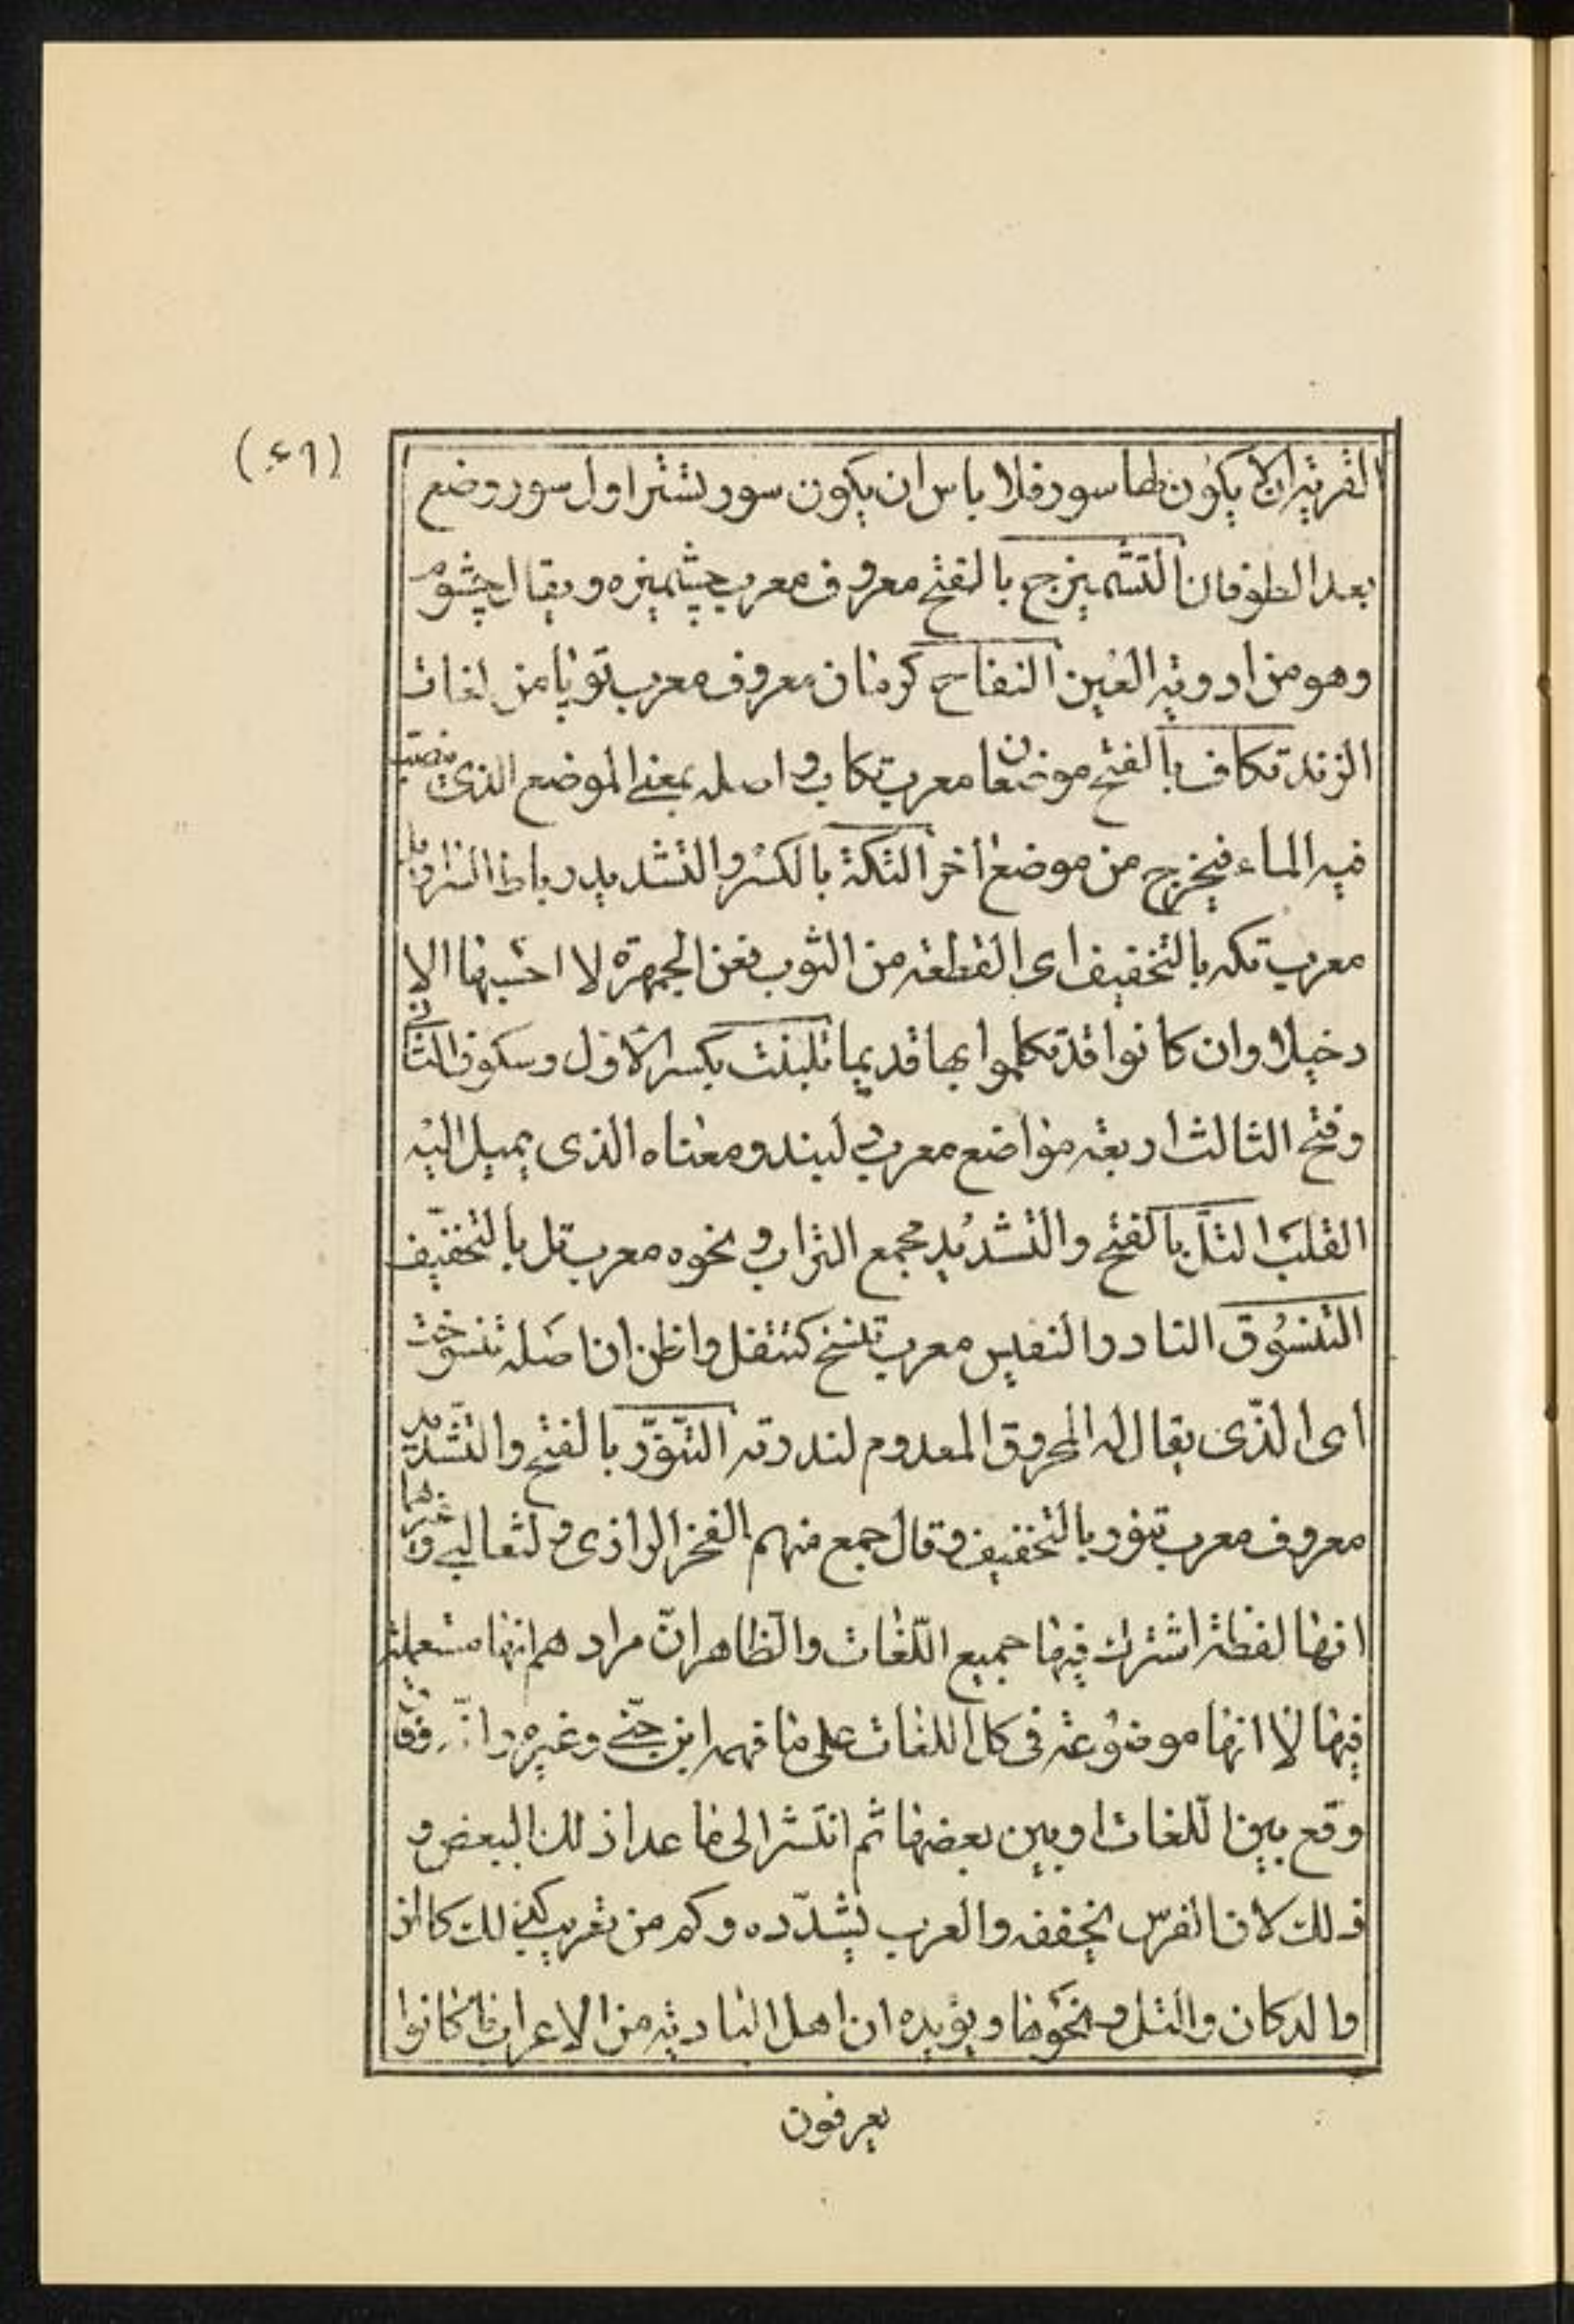 (٤٦)
القرية ان لا يكون لها سور فلا باس ان يكون سور تشتر اول سور وضع
بعد الطوفان التشميزج بالفتح معروف معرب چشميزه ويقال چشوم
وهو من ادوية العين التفاح كرمان معروف معرب توپا من لغات
الزند تكاف بالفتح موضعان معرب تكاب واصله بمعنى الموضع الذى ينصب
فيه الماء فيخرج من موضع اخر التكة بالكسر والتشديد رباط السراويل
معرب تكه بالتخفيف اى القطعة من الثوب فعن الجمهرة لا احسبها الا
دخيلا وان كانوا قد تكلموا بها قديما تلبنت بكسر الاول وسكون الثانى
وفتح الثالث اربعة مواضع معرب لبند ومعناه الذى يميل اليه
القلب التلّ بالفتح والتشديد مجمع التراب ونحوه معرب تل بالتخفيف
التنسوق النادر النفيس معرب تنسخ كتنفل واظن ان اصله تنسوخت
اى الذّى يقال له المحروق المعدوم لندرته التنّور بالفتح والتشديد
معروف معرب تنور بالتخفيف وقال جمع منهم الفخر الرازى و لثعالبى وغيرهما
انها لفظة اشترك فيها جميع اللّغات والظاهر انّ مرادهم انها مستعملة
فيها لا انها موضوعة فى كل اللغات على ما فهمه ابن جنّى وغيره وانّه وفاق
وقع بين اللغات او بين بعضها ثم انتشر الى ما عدا ذلك البعض و
ذلك لان الفرس يخففه والعرب يشدّده وكم من تعريب كذلك كالزر
والدكان والتل ونحوها ويؤيده ان اهل البادية من الاعراب ما كانوا
يعرفون